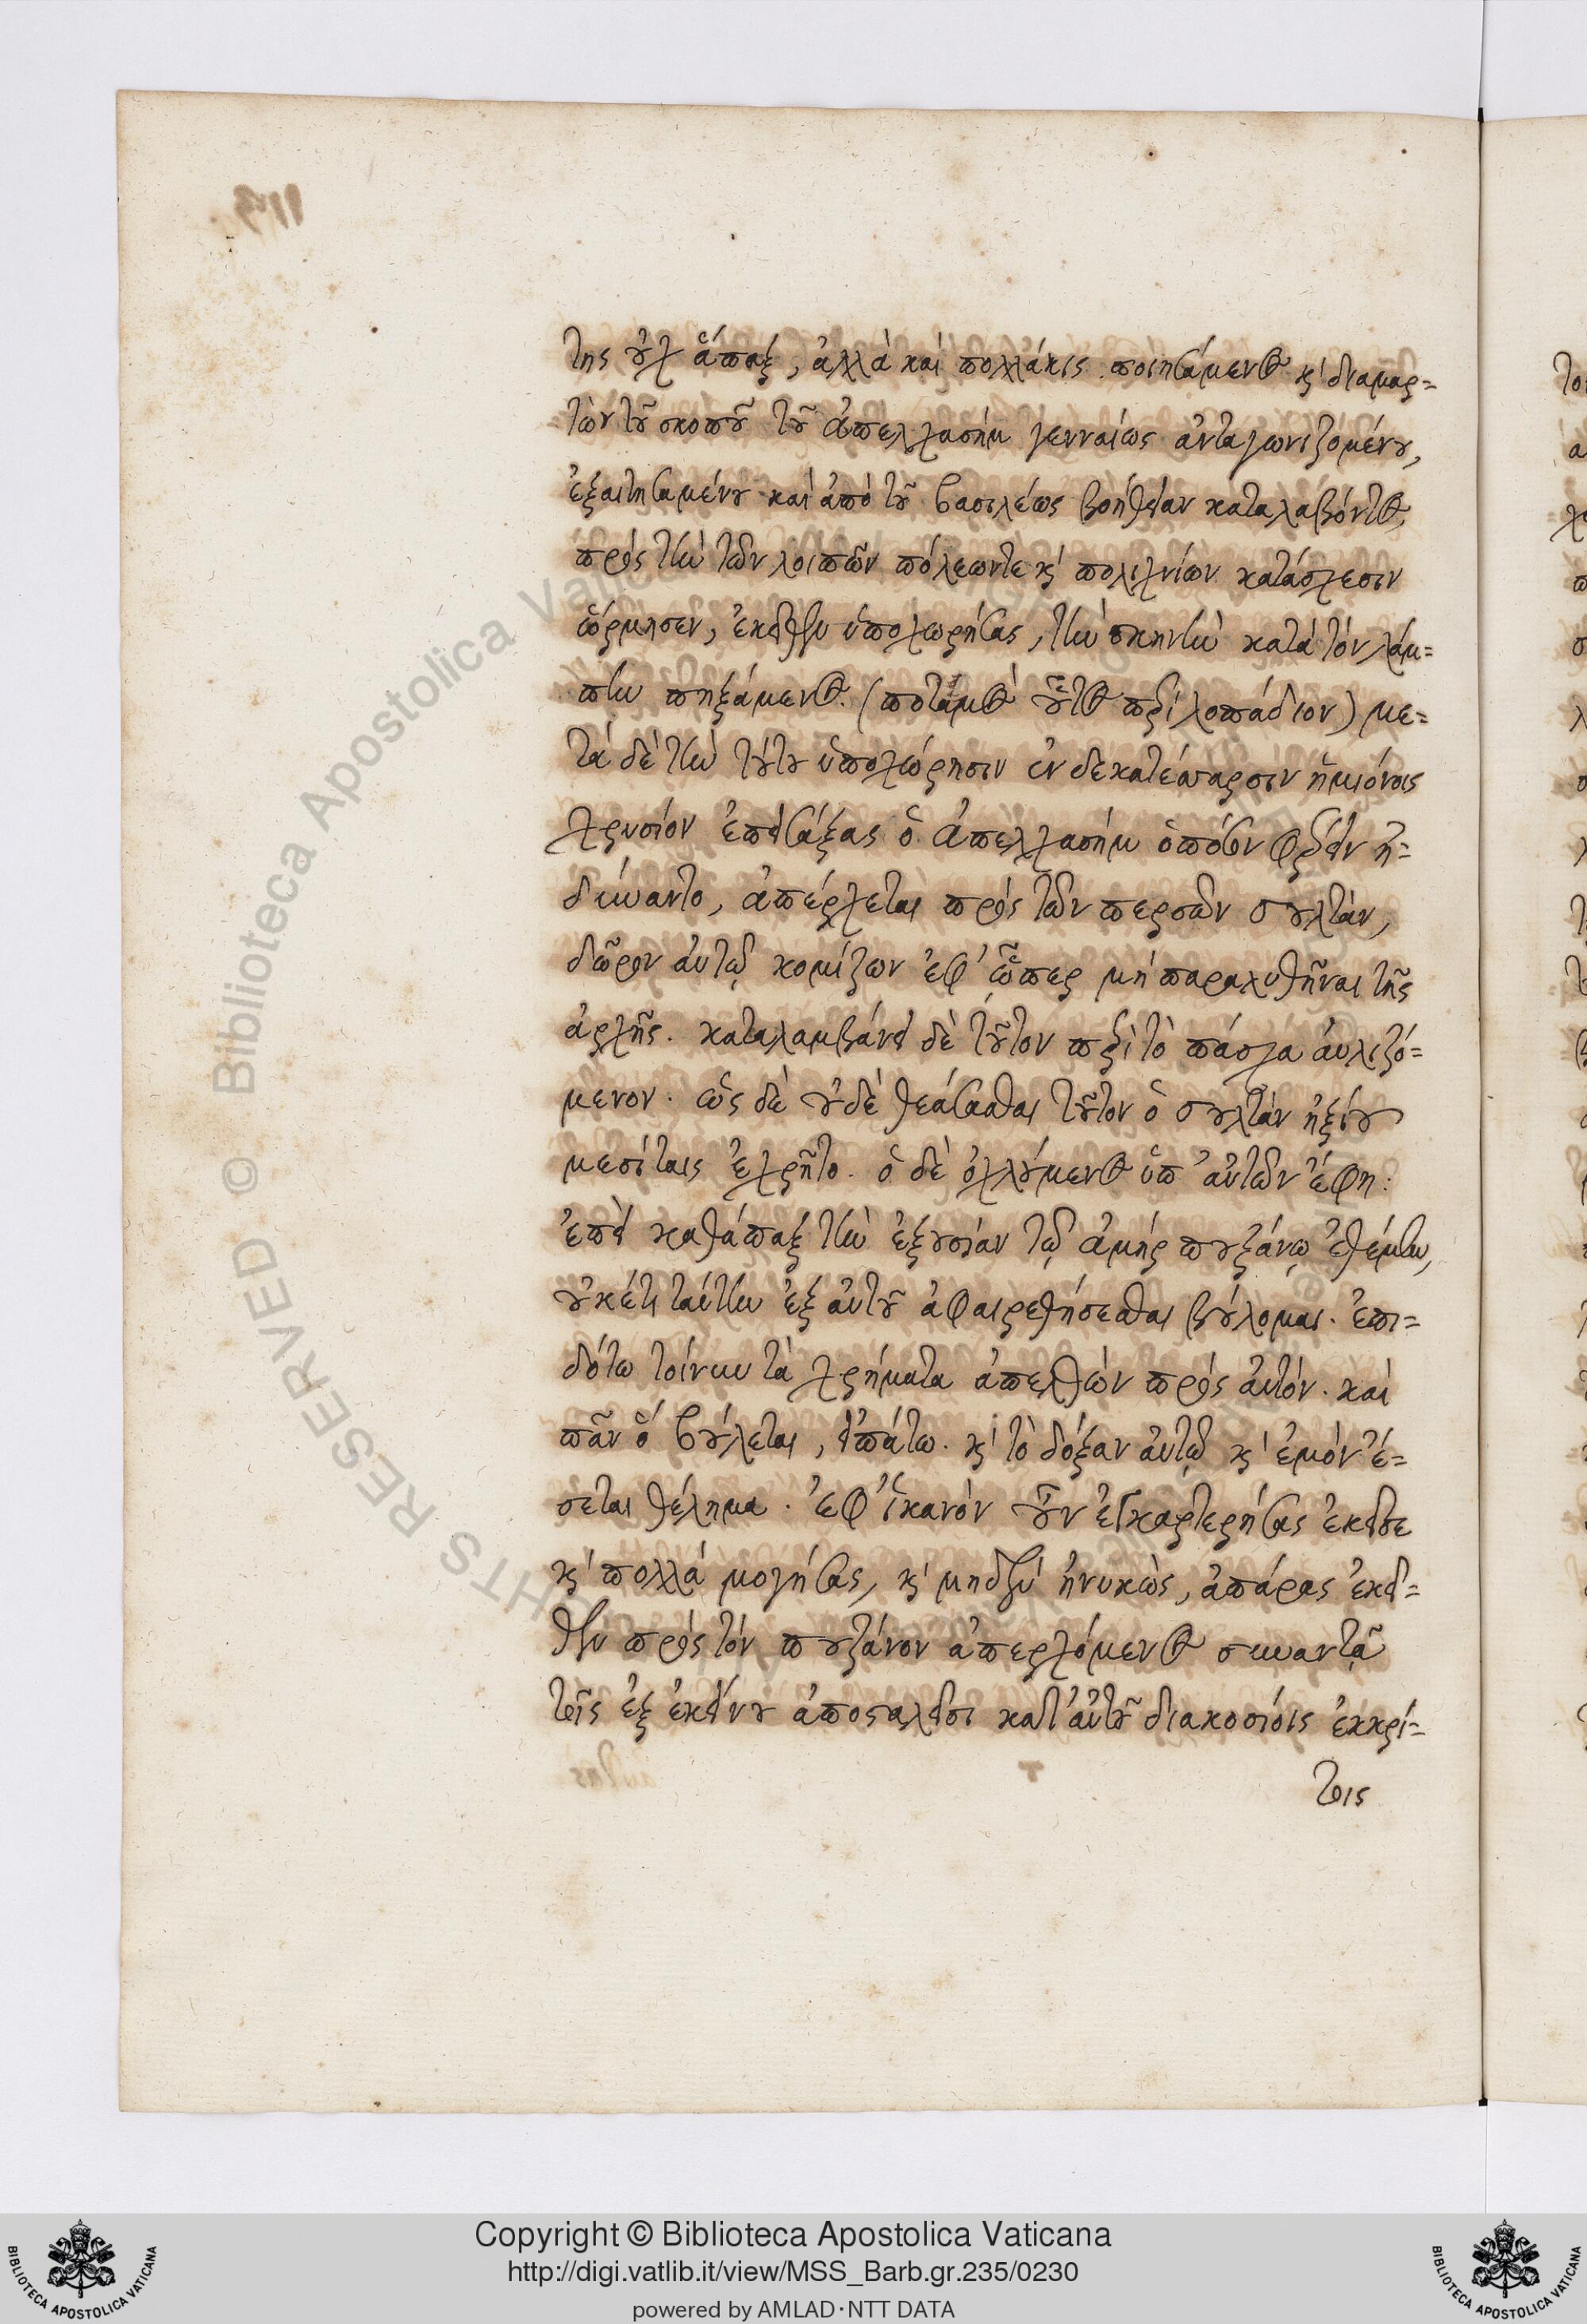 της οὐχ ἅπαξ, ἀλλὰ καὶ πολλάκις ποιησάμενος κ' διαμαρ=
τὼν τοῦ σκοποῦ τοῦ ἀπελχασὴμ γενναίως ἀνταγωνιζομένου,
ἐξαιτησαμένου καὶ ἀπὸ τοῦ βασιλέως βοήθειαν καταλαβόντος,
πρὸς τὴν τῶν λοιπῶν πόλεωντε κ' πολιχνίων κατάσχεσιν
ὥρμησεν, ἐκεῖθεν ὑποχωρήσας, τὴν σκηνὴν κατὰ τὸν λάμ=
πην πηξάμενος. (ποταμὸς οὗτος περὶ λοπάδιον) με=
τὰ δὲ τὴν τούτου ὑποχώρησιν ἐν δεκατέσσαρσιν ἡμιόνοις
χρυσίον ἐπισάξας ὁ ἀπελχασὴμ ὁπόσον φέρειν ἠ=
δύναντο, ἀπέρχεται πρὸς τὸν περσῶν σουλτὰν,
δῶρον αὐτῷ κομίζων ἐφ' ᾧπερ μὴ παραλυθῆναι τῆς
ἀρχῆς. καταλαμβάνει δὲ τοῦτον περὶ τὸ πάσχα αὐλιζό=
μενον. ὡς δὲ οὐδὲ θεάσασθαι τοῦτον ὁ σουλτὰν ἠξίου
μεσίταις ἐχρῆτο. ὁ δὲ ὀχλούμενος ὑπ' αὐτῶν ἔφη:
ἐπεὶ καθάπαξ τὴν ἐξουσίαν τῷ ἀμὴρ πουζάνῳ ἐθέμην,
οὐκέτι ταύτην ἐξ αὐτοῦ ἀφαιρεθήσεσθαι βούλομαι. ἐπι=
δότω τοίνυν τὰ χρήματα ἀπελθὼν πρὸς αὐτόν. καὶ
πᾶν ὃ βούλεται, εἰπάτω. κ' τὸ δόξαν αὐτῷ κ' ἐμὸν ἔ=
σεται θέλημα. ἐφ' ἱκανὸν οὖν ἐγκαρτερήσας ἐκεῖσε
κ' πολλὰ μογήσας, κ' μηδὲν ἠνυκὼς, ἀπάρας ἐκεῖ=
θεν πρὸς τὸν πουζάνον ἀπερχόμενος συναντᾷ
τοῖς ἐξ ἐκείνου ἀποσταλεῖσι κατ' αὐτοῦ διακοσίοις ἐκκρί=
τοις
Copyright © Biblioteca Apostolica Vaticana
http://digi.vatlib.it/view/MSS_Barb.gr.235/0230
powered by AMLAD·NTT DATA